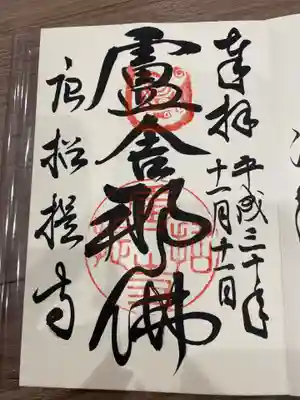 奉拝
平成三十年
十一月十一日
盧舎那佛
唐招提寺